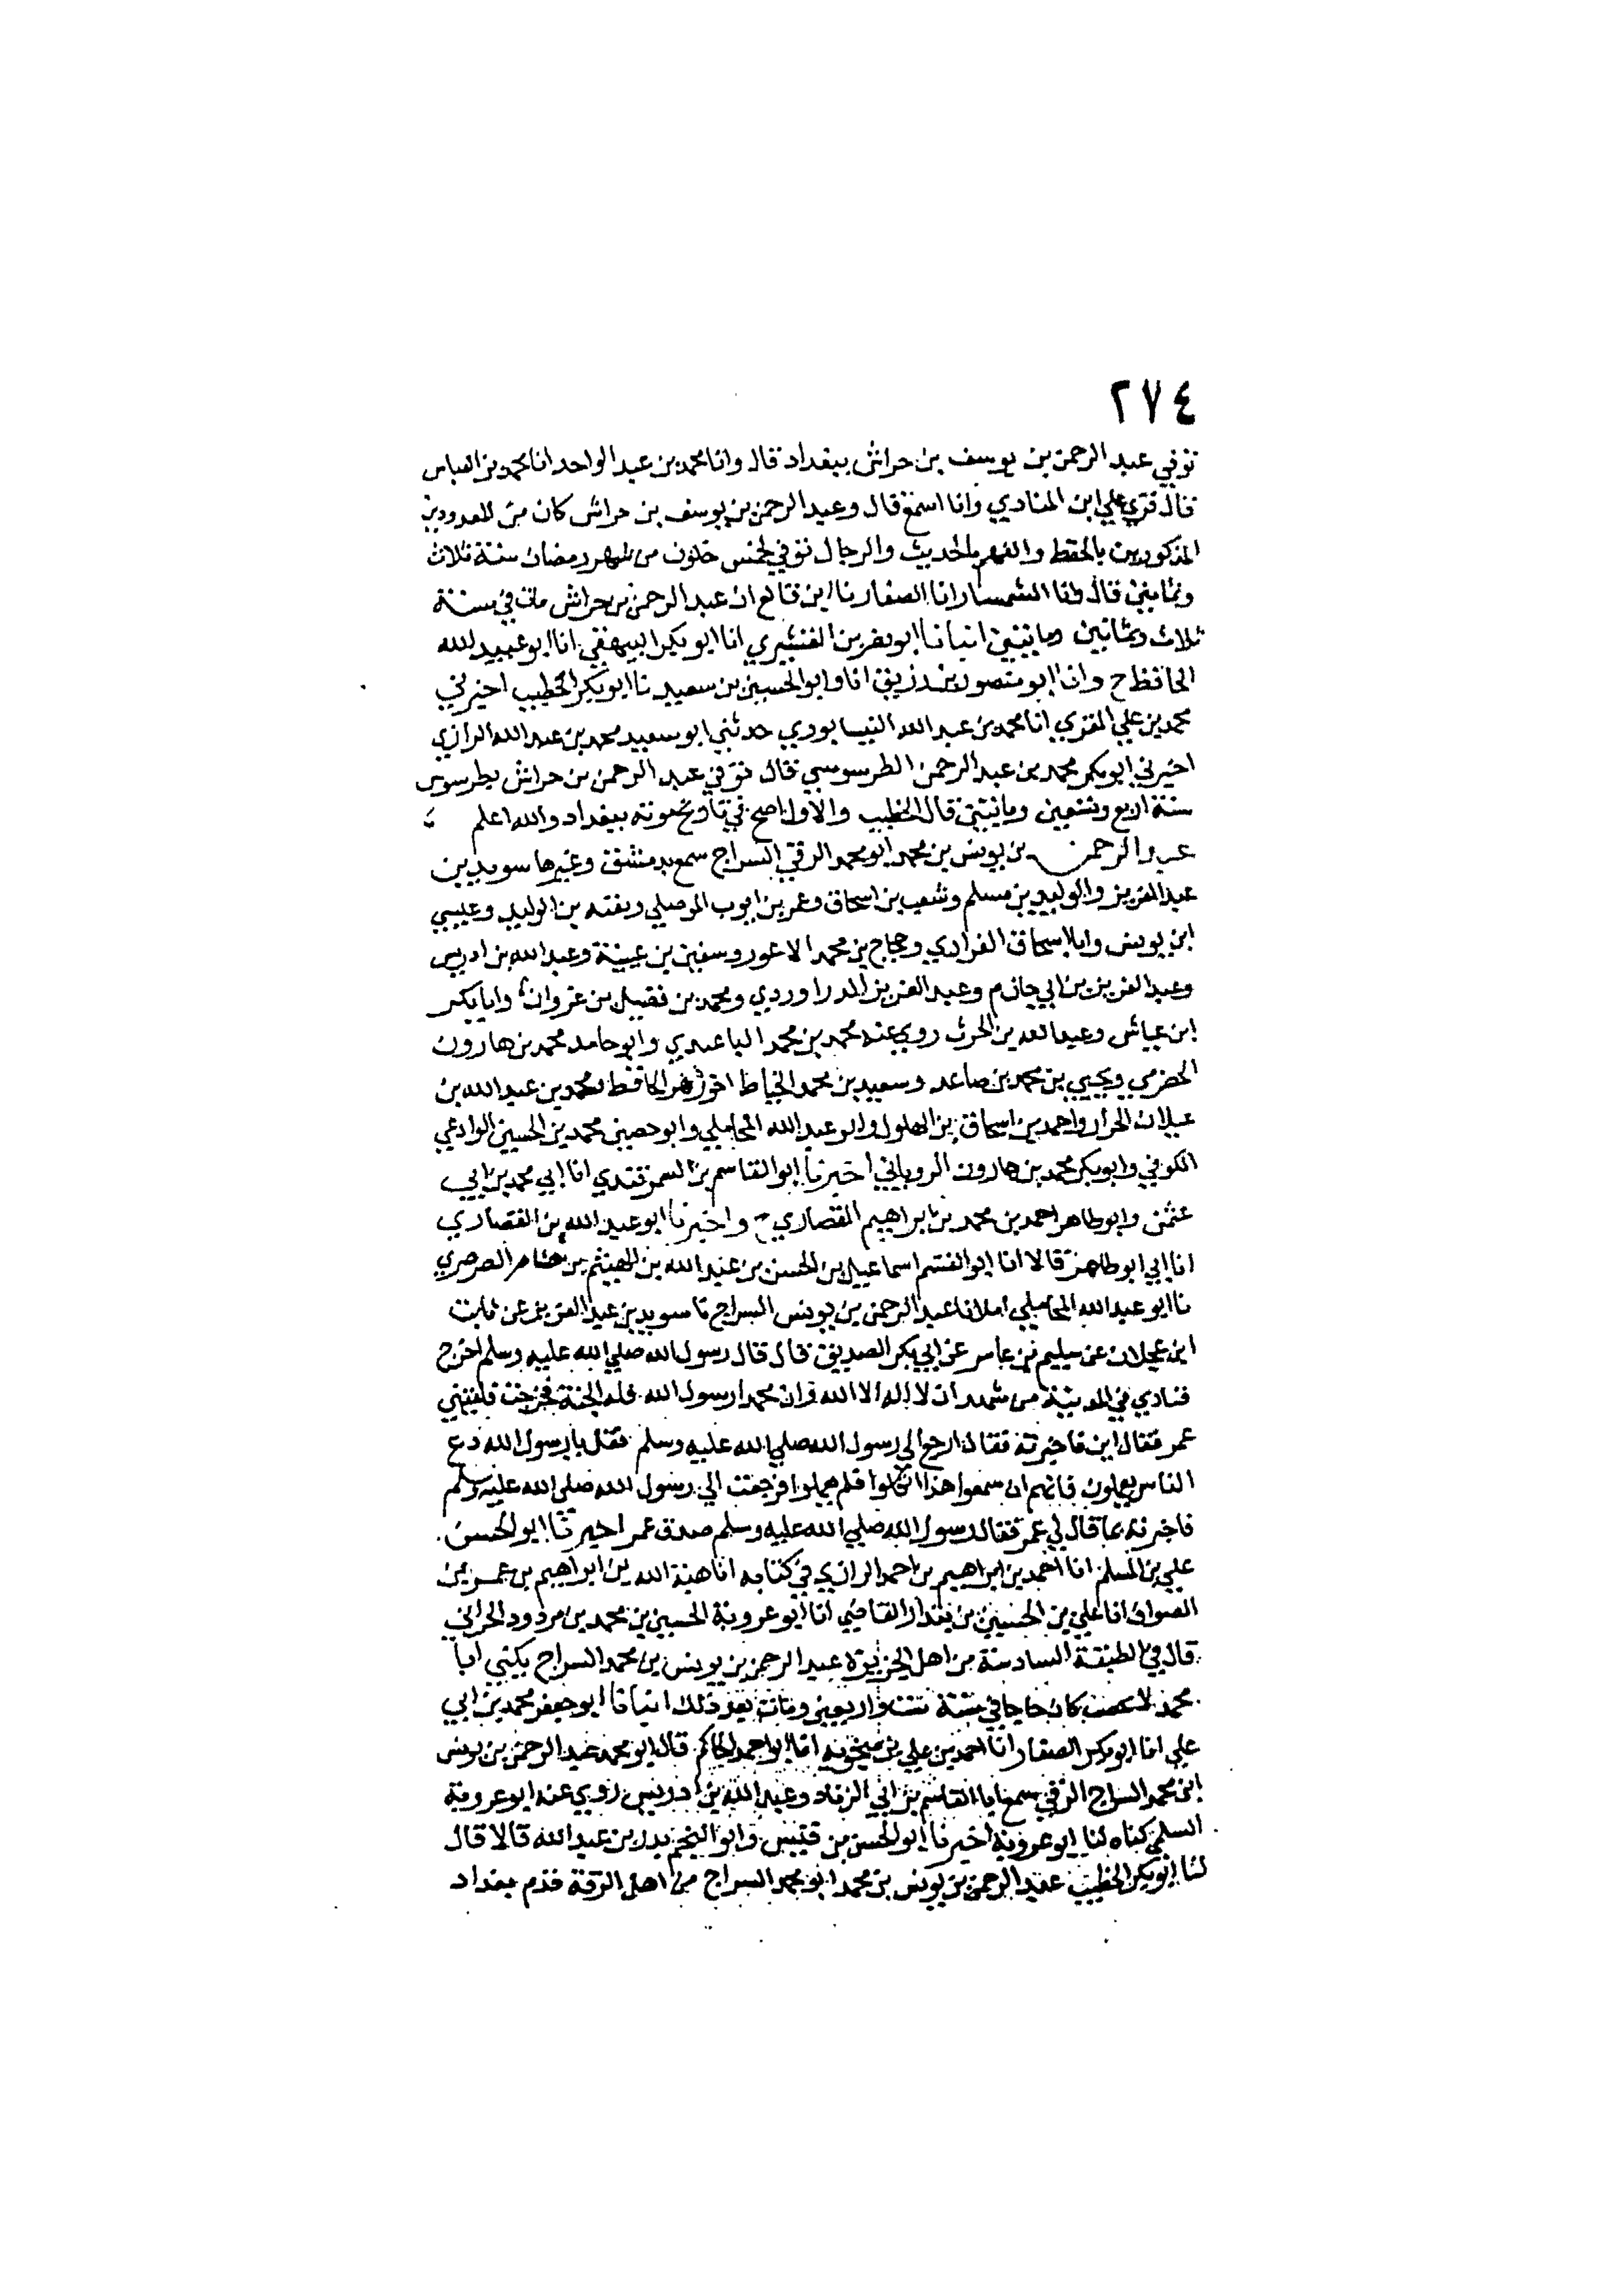 ٢٧٤
توفي عبد الرحمن بن يوسف بن حراش ببغداد قال وانا محمد بن عبد الواحد انا محمد بن العباس
قال قري علي ابن المنادي وانا اسمع قال وعبد الرحمن بن يوسف بن حراش كان من المعدودين
المذكورين بالحفظ والفهم بالحديث والرجال توفي لخمس خلون من شهر رمضان سنة ثلاث
وثمانين قال لنا السمسار انا الصفار نا ابن قانع ان عبد الرحمن بن حراش مات في سنة
ثلاث وثمانين ومايتين انبانا ابو نصر بن القشيري انا ابو بكر البيهقي انا ابو عبد الله
الحافظ ح وانا ابو منصور بن زريق انا وابو الحسين بن سعيد نا ابو بكر الخطيب اخبرني
محمد بن علي المقري انا محمد بن عبد الله النيسابوري حدثني ابو سعيد محمد بن عبد الله الرازي
اخبرني ابو بكر محمد بن عبد الرحمن الطرسوسي قال توفي عبد الرحمن بن حراش بطرسوس
سنة اربع وتسعين ومايتين قال الخطيب والاول اصح في تاريخ موته ببغداد والله اعلم
عبد الرحمن بن يونس بن محمد ابو محمد الرقي السراج سمع بدمشق وغيرها سويد بن
عبد العزيز والوليد بن مسلم وشعيب بن اسحاق وعمر بن ايوب الموصلي وبقية بن الوليد وعيسي
ابن يونس وابا اسحاق الفزاري وحجاج بن محمد الاعور وسفين بن عيينة وعبد الله بن ادريس
وعبد العزيز بن ابي حازم وعبد العزيز الدراوردي ومحمد بن فضيل بن غزوان وابا بكر
ابن عياش وعبد الله بن الحرث روي عنه محمد بن محمد الباغندي وابو حامد محمد بن هارون
الحضرمي ويحيي بن محمد بن صاعد وسعيد بن محمد الخياط اخو زهير الحافظ ومحمد بن عبد الله بن
غيلان الخزاز واحمد بن اسحاق بن البهلول وابو عبد الله المحاملي وابو حصين محمد بن الحسين الوادعي
الكوفي وابو بكر محمد بن هارون الروياني اخبرنا ابو القاسم بن السمرقندي انا ابي محمد بن ابي
عثمن وابو طاهر احمد بن محمد بن ابراهيم القصاري ح واخبرنا ابو عبد الله بن القصاري
انا ابي ابو طاهر قالا انا ابو القسم اسماعيل بن الحسن بن عبد الله بن الهيثم بن هشام الصرصري
نا ابو عبد الله المحاملي املا نا عبد الرحمن بن يونس السراج نا سويد بن عبد العزيز عن ثابت
ابن عجلان عن سليم بن عامر عن ابي بكر الصديق قال قال رسول الله صلي الله عليه وسلم اخرج
فنادي في المدينة من شهد ان لا اله الا الله وان محمدا رسول الله فله الجنة فخرجت فلقيني
عمر فقال اين فاخبرته فقال ارجع الي رسول الله صلي الله عليه وسلم فقل يا رسول الله دع
الناس يعملون فانهم ان سمعوا هذا اتكلوا فلم يعملوا فرجعت الي رسول الله صلي الله عليه وسلم
فاخبرته بما قال لي عمر فقال رسول الله صلي الله عليه وسلم صدق عمر اخبرنا ابو الحسن
علي بن المسلم انا احمد بن ابراهيم بن احمد الرازي في كتابه انا هبة الله بن ابراهيم بن عمر بن
الصواف انا علي بن الحسين بن بندار القاضي انا ابو عروبة الحسين بن محمد بن مودود الحراني
قال في الطبقة السادسة من اهل الجزيرة عبد الرحمن بن يونس بن محمد السراج يكني ابا
محمد لا يخضب كان حاجا في سنة ست واربعين ومات بعد ذلك انبانا ابو جعفر محمد بن ابي
علي انا ابو بكر الصفار انا احمد بن علي بن منجويه انا ابو احمد الحاكم قال ابو محمد عبد الرحمن بن يونس
ابن محمد السراج الرقي سمع ابا القاسم بن ابي الزناد وعبد الله بن ادريس روي عنه ابو عروبة
السلمي كناه لنا ابو عروبة اخبرنا ابو الحسن بن قبيس وابو النجم بدر بن عبد الله قالا قال
لنا ابو بكر الخطيب عبد الرحمن بن يونس بن محمد ابو محمد السراج من اهل الرقة قدم بغداد